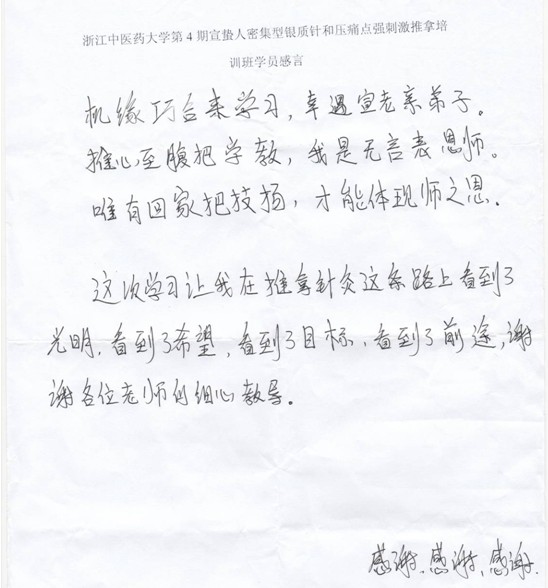 浙江中医药大学第4期宣蛰人密集型银质针和压痛点强刺激推拿培
训班学员感言
机缘巧合来学习，幸遇宣老亲弟子。
推心至腹把学教，我是无言表恩师。
唯有回家把技扬，才能体现师之恩。
这次学习让我在推拿针灸这条路上看到了
光明，看到了希望，看到了目标，看到了前途，谢
谢各位老师的细心教导。
感谢、感谢、感谢.